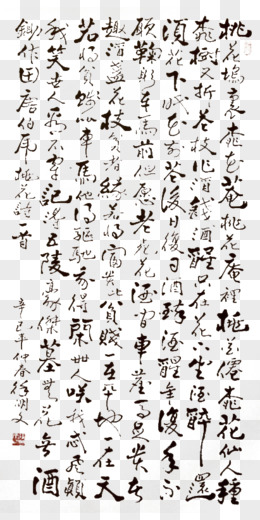 桃花塢裏桃花菴桃花庵裡桃花僊桃花仙人種
桃樹又折花枝作酒錢酒醒只在花下坐酒醉還
須花下眠花前花後日復日酒醉酒醒年復年不
願鞠躬車馬前但願老死花酒間車塵馬足貴者
趣酒盞花枝貧者緣若將富貴比貧賤一在平地一在天
若將貧賤比車馬他得驅馳我得閑世人笑我忒風顛
我笑世人看不穿記得五陵豪傑墓無花無酒
鋤作田唐伯虎桃花詩一首
辛巳年仲春徐